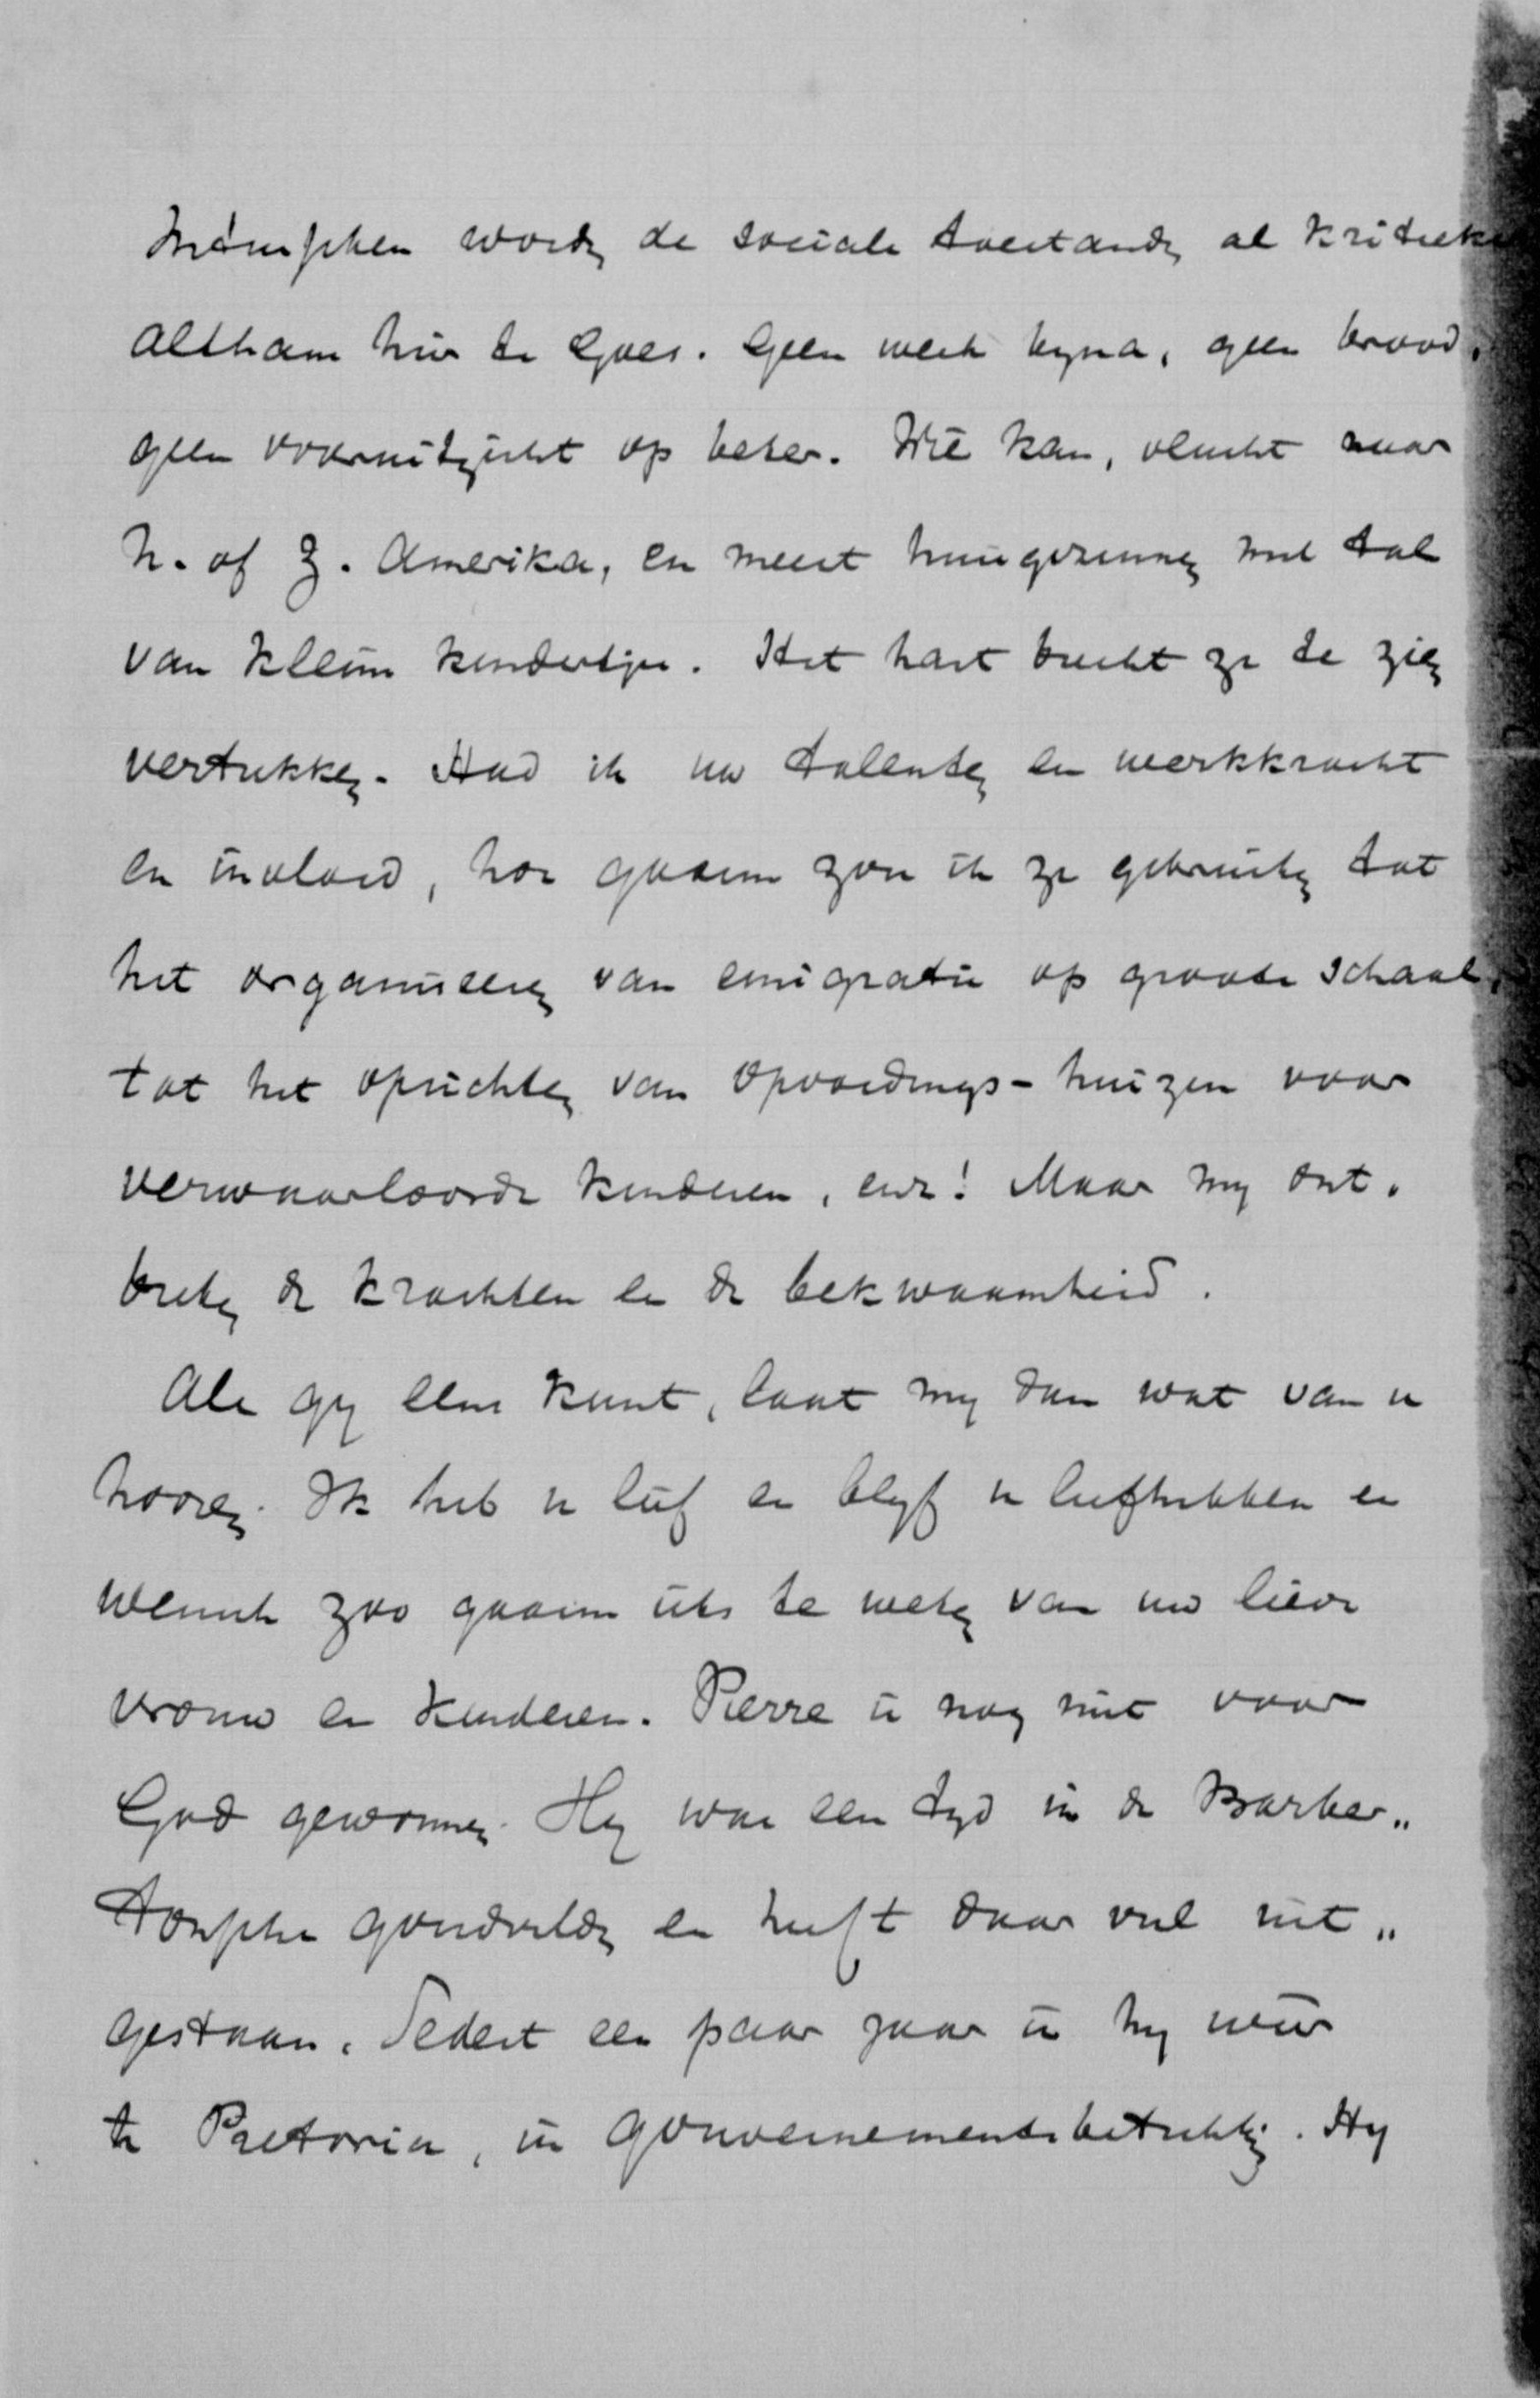 Inmiddels worden de sociale toestanden al kritieker
althans hier te Goes. Geen werk byna, geen brood,
geen vooruitzicht op beter. Wie kan, vlucht naar
N. of Z. Amerika, en meest huisgezinnen met tal
van kleine kindertjes. Het hart breekt ze te zien
vertrekken. Had ik uw talenten en werkkracht
en invloed, hoe gaarne zou ik ze gebruiken tot
het organiseeren van emigratie op groote schaal,
tot het oprichten van opvoedings-huizen voor
verwaarloosde kinderen, enz! Maar my ont-
breken de krachten en de bekwaamheid.
Als gy eens kunt, laat my dan wat van u
hooren. Ik heb u lief en blyf u liefhebben en
wensch zoo gaarne iets te weten van uw lieve
vrouw en kinderen. Pierre is nog niet voor
God gewonnen. Hy was een tyd in de Barber„
tonsche goudvelden en heeft daar veel uit„
gestaan. Sedert een paar jaar is hy weer
te Pretoria, in gouvernementsbetrekking. Hy